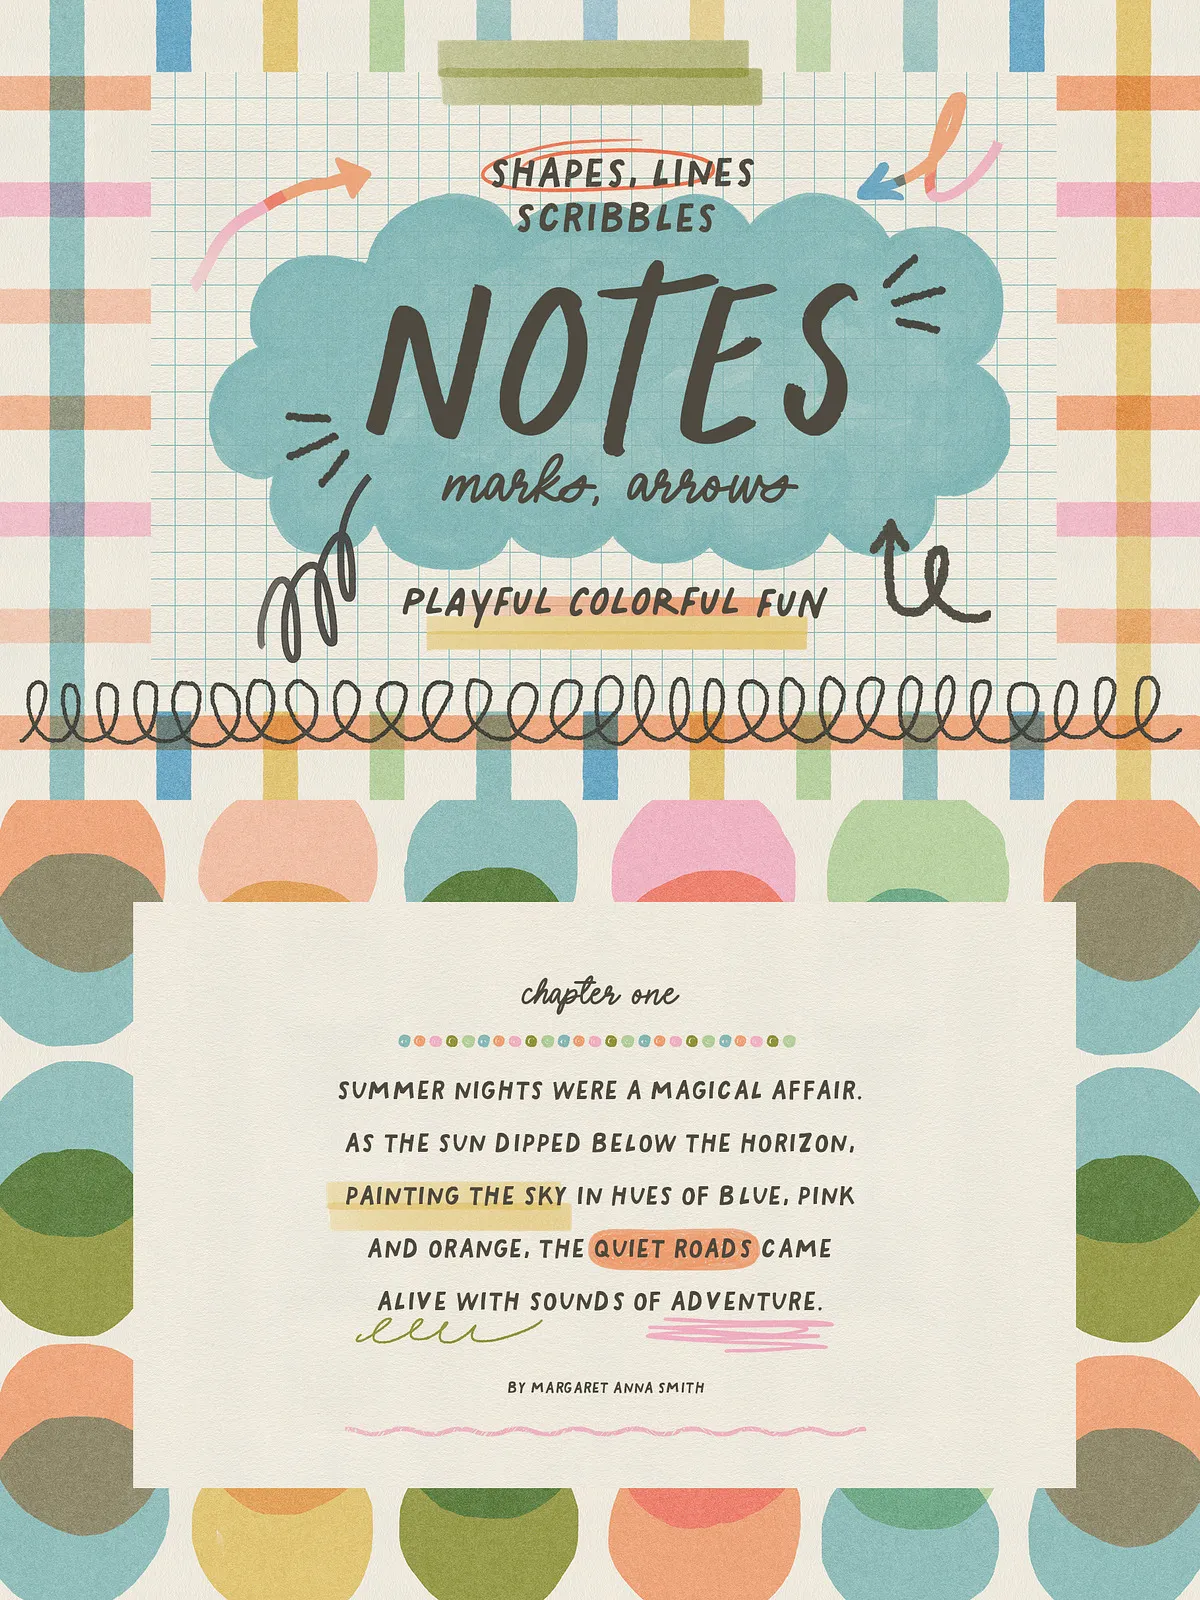 SHAPES, LINES
SCRIBBLES
NOTES
marks, arrows
PLAYFUL COLORFUL FUN
chapter one
SUMMER NIGHTS WERE A MAGICAL AFFAIR.
AS THE SUN DIPPED BELOW THE HORIZON,
PAINTING THE SKY IN HUES OF BLUE, PINK
AND ORANGE, THE QUIET ROADS CAME
ALIVE WITH SOUNDS OF ADVENTURE.
BY MARGARET ANNA SMITH